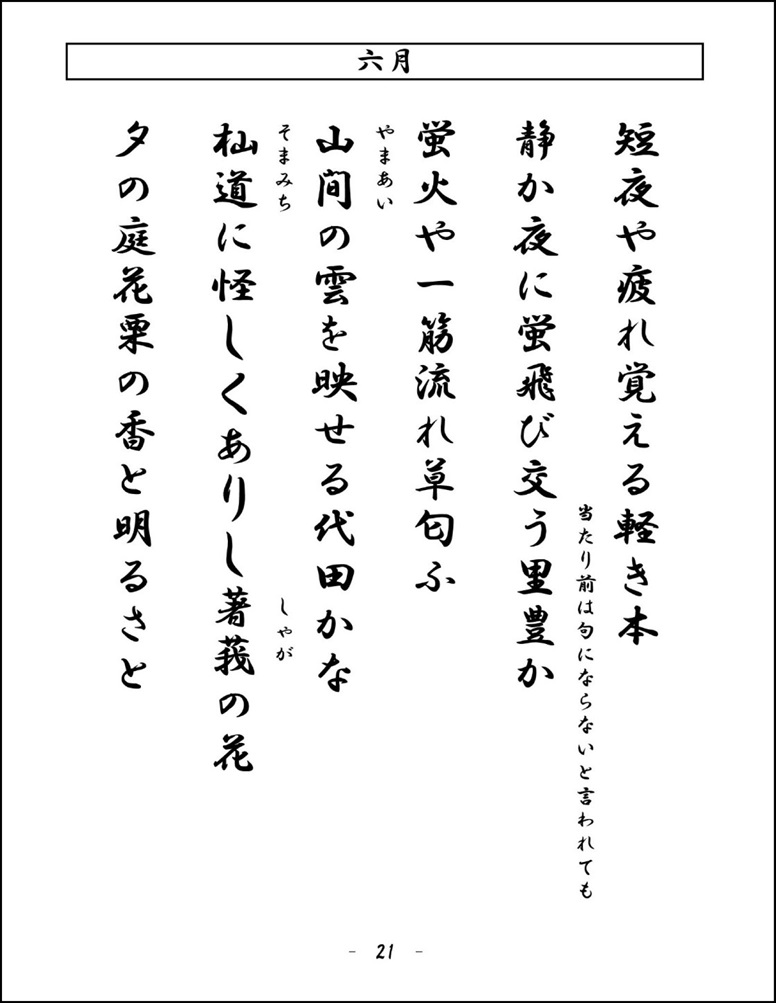 六月
短夜や疲れ覚える軽き本
当たり前は句にならないと言われても
静か夜に蛍飛び交う里豊か
蛍火や一筋流れ草匂ふ
やまあい
山間の雲を映せる代田かな
そまみち
しゃが
杣道に怪しくありし著莪の花
夕の庭花栗の香と明るさと
- 21 -